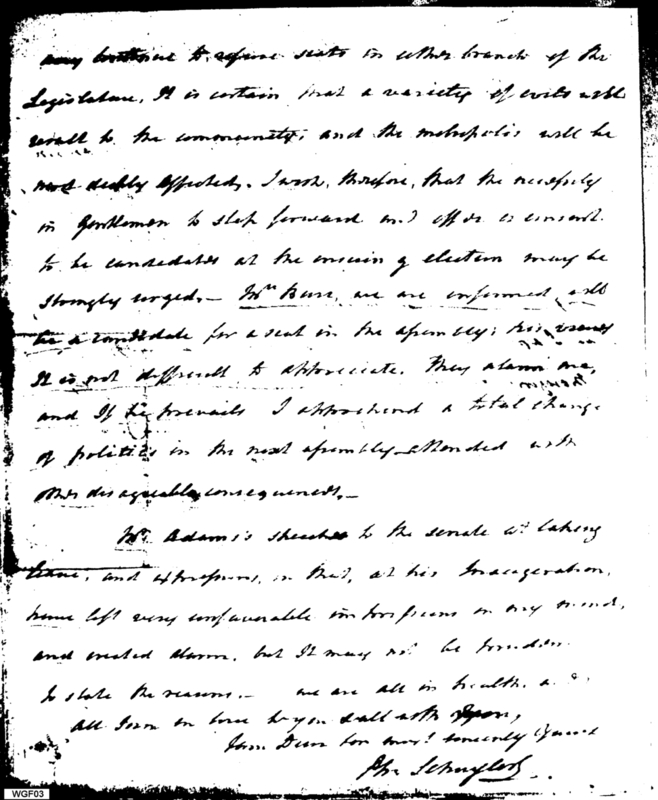 continue to refuse seats in either branch of the
Legislature, It is certain that a variety of evils will
result to the community; and the metropolis will be
most deeply affected. I wish, therefore, that the necessity
in Gentlemen to step forward and offer or consent
to be candidates at the ensuing election may be
strongly urged,— Mr. Burr, we are informed will
be a candidate for a seat in the assembly; his views
It is not difficult to appreciate. They alarm me,
and If he prevails I apprehend a total change
of politics in the next assembly attended with
other disagreeable consequences.—
Mr. Adams's speeches to the senate at taking
leave, and expressions, in that, at his Inaugeration,
have left very unfavorable impressions on my mind,
and created alarm, but It may not be prudent
to state the reasons.— we are all in health, &
All Join in love to you & all with you,
I am Dear Son most sincerely Yours
Ph: Schuyler
WGF03